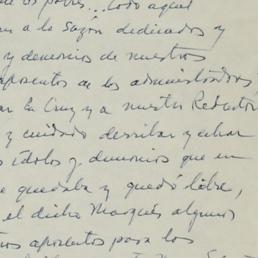 de los pobres... todo aquel
an a la sazón dedicados y
y demonios de nuestros
aposentos de los administrador
ar la Cruz y a nuestro Redentor
y cuidado derribar y echar
s ídolos y demonios que en
e quedaba y quedó libre,
el dicho Marqués algunos
ros aposentos para los